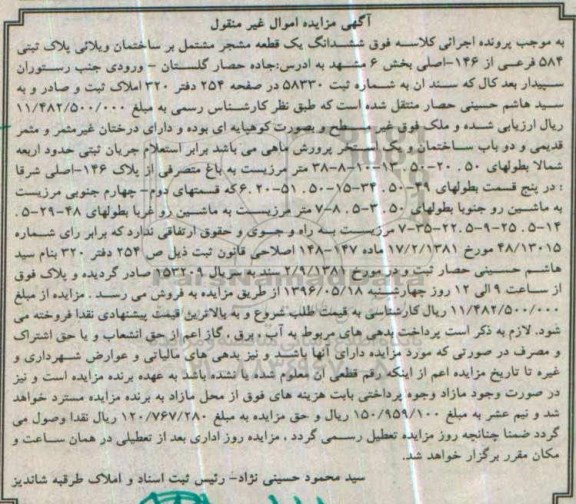 آگهی مزایده اموال غیر منقول
به موجب پرونده اجرائی کلاسه فوق ششدانگ یک قطعه مشجر مشتمل بر ساختمان ویلائی پلاک ثبتی
۵۸۴ فرعی از ۱۴۶-اصلی بخش ۶ مشهد به ادرس:جاده حصار گلستان - ورودی جنب رستوران
سپیدار بعد کال که سند ان به شماره ثبت ۵۸۳۳۰ در صفحه ۲۵۴ دفتر ۳۲۰ املاک ثبت و صادر و به
سید هاشم حسینی حصار منتقل شده است که طبق نظر کارشناس رسمی به مبلغ ۱۱/۴۸۲/۵۰۰/۰۰۰
ریال ارزیابی شده و ملک فوق غیر مسطح و بصورت کوهپایه ای بوده و دارای درختان غیرمثمر و مثمر
قدیمی و دو باب ساختمان و یک استخر پرورش ماهی می باشد برابر استعلام جریان ثبتی حدود اربعه
شمالا بطولهای ۵۰. ۲۰-۵۰. ۱۳-۱۰-۸-۳۸ متر مرزیست به باغ متصرفی از پلاک ۱۴۶-اصلی شرقا
: در پنج قسمت بطولهای ۴۹-۵۰. ۳۴-۱۵-۵۰. ۵۱-۲۰. ۶ که قسمتهای دوم- چهارم جنوبی مرزیست
به ماشین رو جنوبا بطولهای ۵۰. ۳-۵. ۸-۷ متر مرزیست به ماشین رو غربا بطولهای ۴۸-۲۹-۵.
۱۴-۵. ۲۵-۹-۵. ۲۲-۷-۳۵ مرزیست به راه و جوی و حقوق ارتفاقی ندارد که برابر رای شماره
۴۸/۱۳۰۱۵ مورخ ۱۷/۲/۱۳۸۱ ماده ۱۴۷-۱۴۸ اصلاحی قانون ثبت ذیل ص ۲۵۴ دفتر ۳۲۰ بنام سید
هاشم حسینی حصار ثبت و در مورخ ۲/۹/۱۳۸۱ سند به سریال ۱۵۳۲۰۹ صادر گردیده و پلاک فوق
از ساعت ۹ الی ۱۲ روز چهارشنبه ۱۳۹۶/۰۵/۱۸ از طریق مزایده به فروش می رسد . مزایده از مبلغ
۱۱/۴۸۲/۵۰۰/۰۰۰ ریال کارشناسی به قیمت طلب شروع و به بالاترین قیمت پیشنهادی نقدا فروخته می
شود. لازم به ذکر است پرداخت بدهی های مربوط به آب ، برق ، گاز اعم از حق انشعاب و یا حق اشتراک
و مصرف در صورتی که مورد مزایده دارای آنها باشد و نیز بدهی های مالیاتی و عوارض شهرداری و
غیره تا تاریخ مزایده اعم از اینکه رقم قطعی آن معلوم شده یا نشده باشد به عهده برنده مزایده است و نیز
در صورت وجود مازاد وجوه پرداختی بابت هزینه های فوق از محل مازاد به برنده مزایده مسترد خواهد
شد و نیم عشر به مبلغ ۱۵۰/۹۵۹/۱۰۰ ریال و حق مزایده به مبلغ ۱۲۰/۷۶۷/۲۸۰ ریال نقدا وصول می
گردد ضمنا چنانچه روز مزایده تعطیل رسمی گردد ، مزایده روز اداری بعد از تعطیلی در همان ساعت و
مکان مقرر برگزار خواهد شد.
سید محمود حسینی نژاد- رئیس ثبت اسناد و املاک طرقبه شاندیز